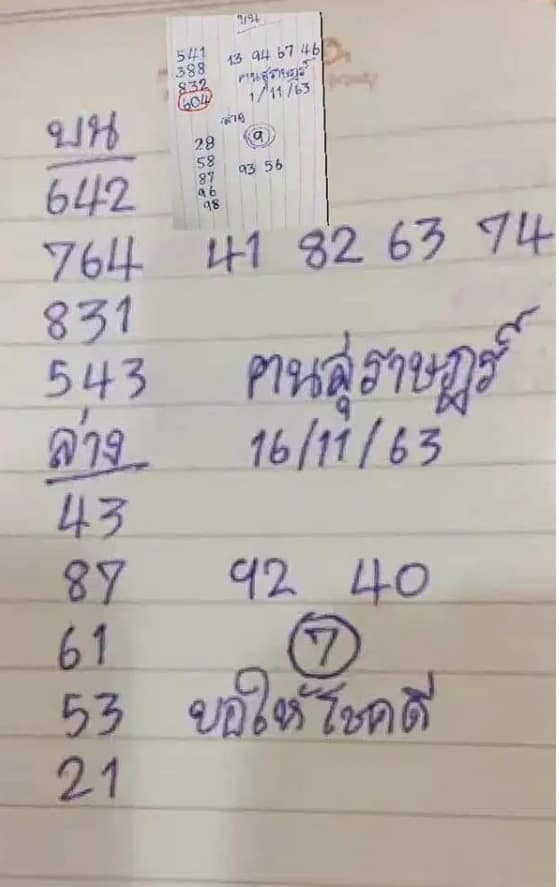 บน
541
388 13 94 67 46
832 คนสุราษฎร์
604 1/11/63
ล่าง
28 9
58
87 93 56
96
98
บน
642
764 41 82 63 74
831
543 คนสุราษฎร์
ล่าง 16/11/63
43
87 92 40
61 7
53 ขอให้โชคดี
21